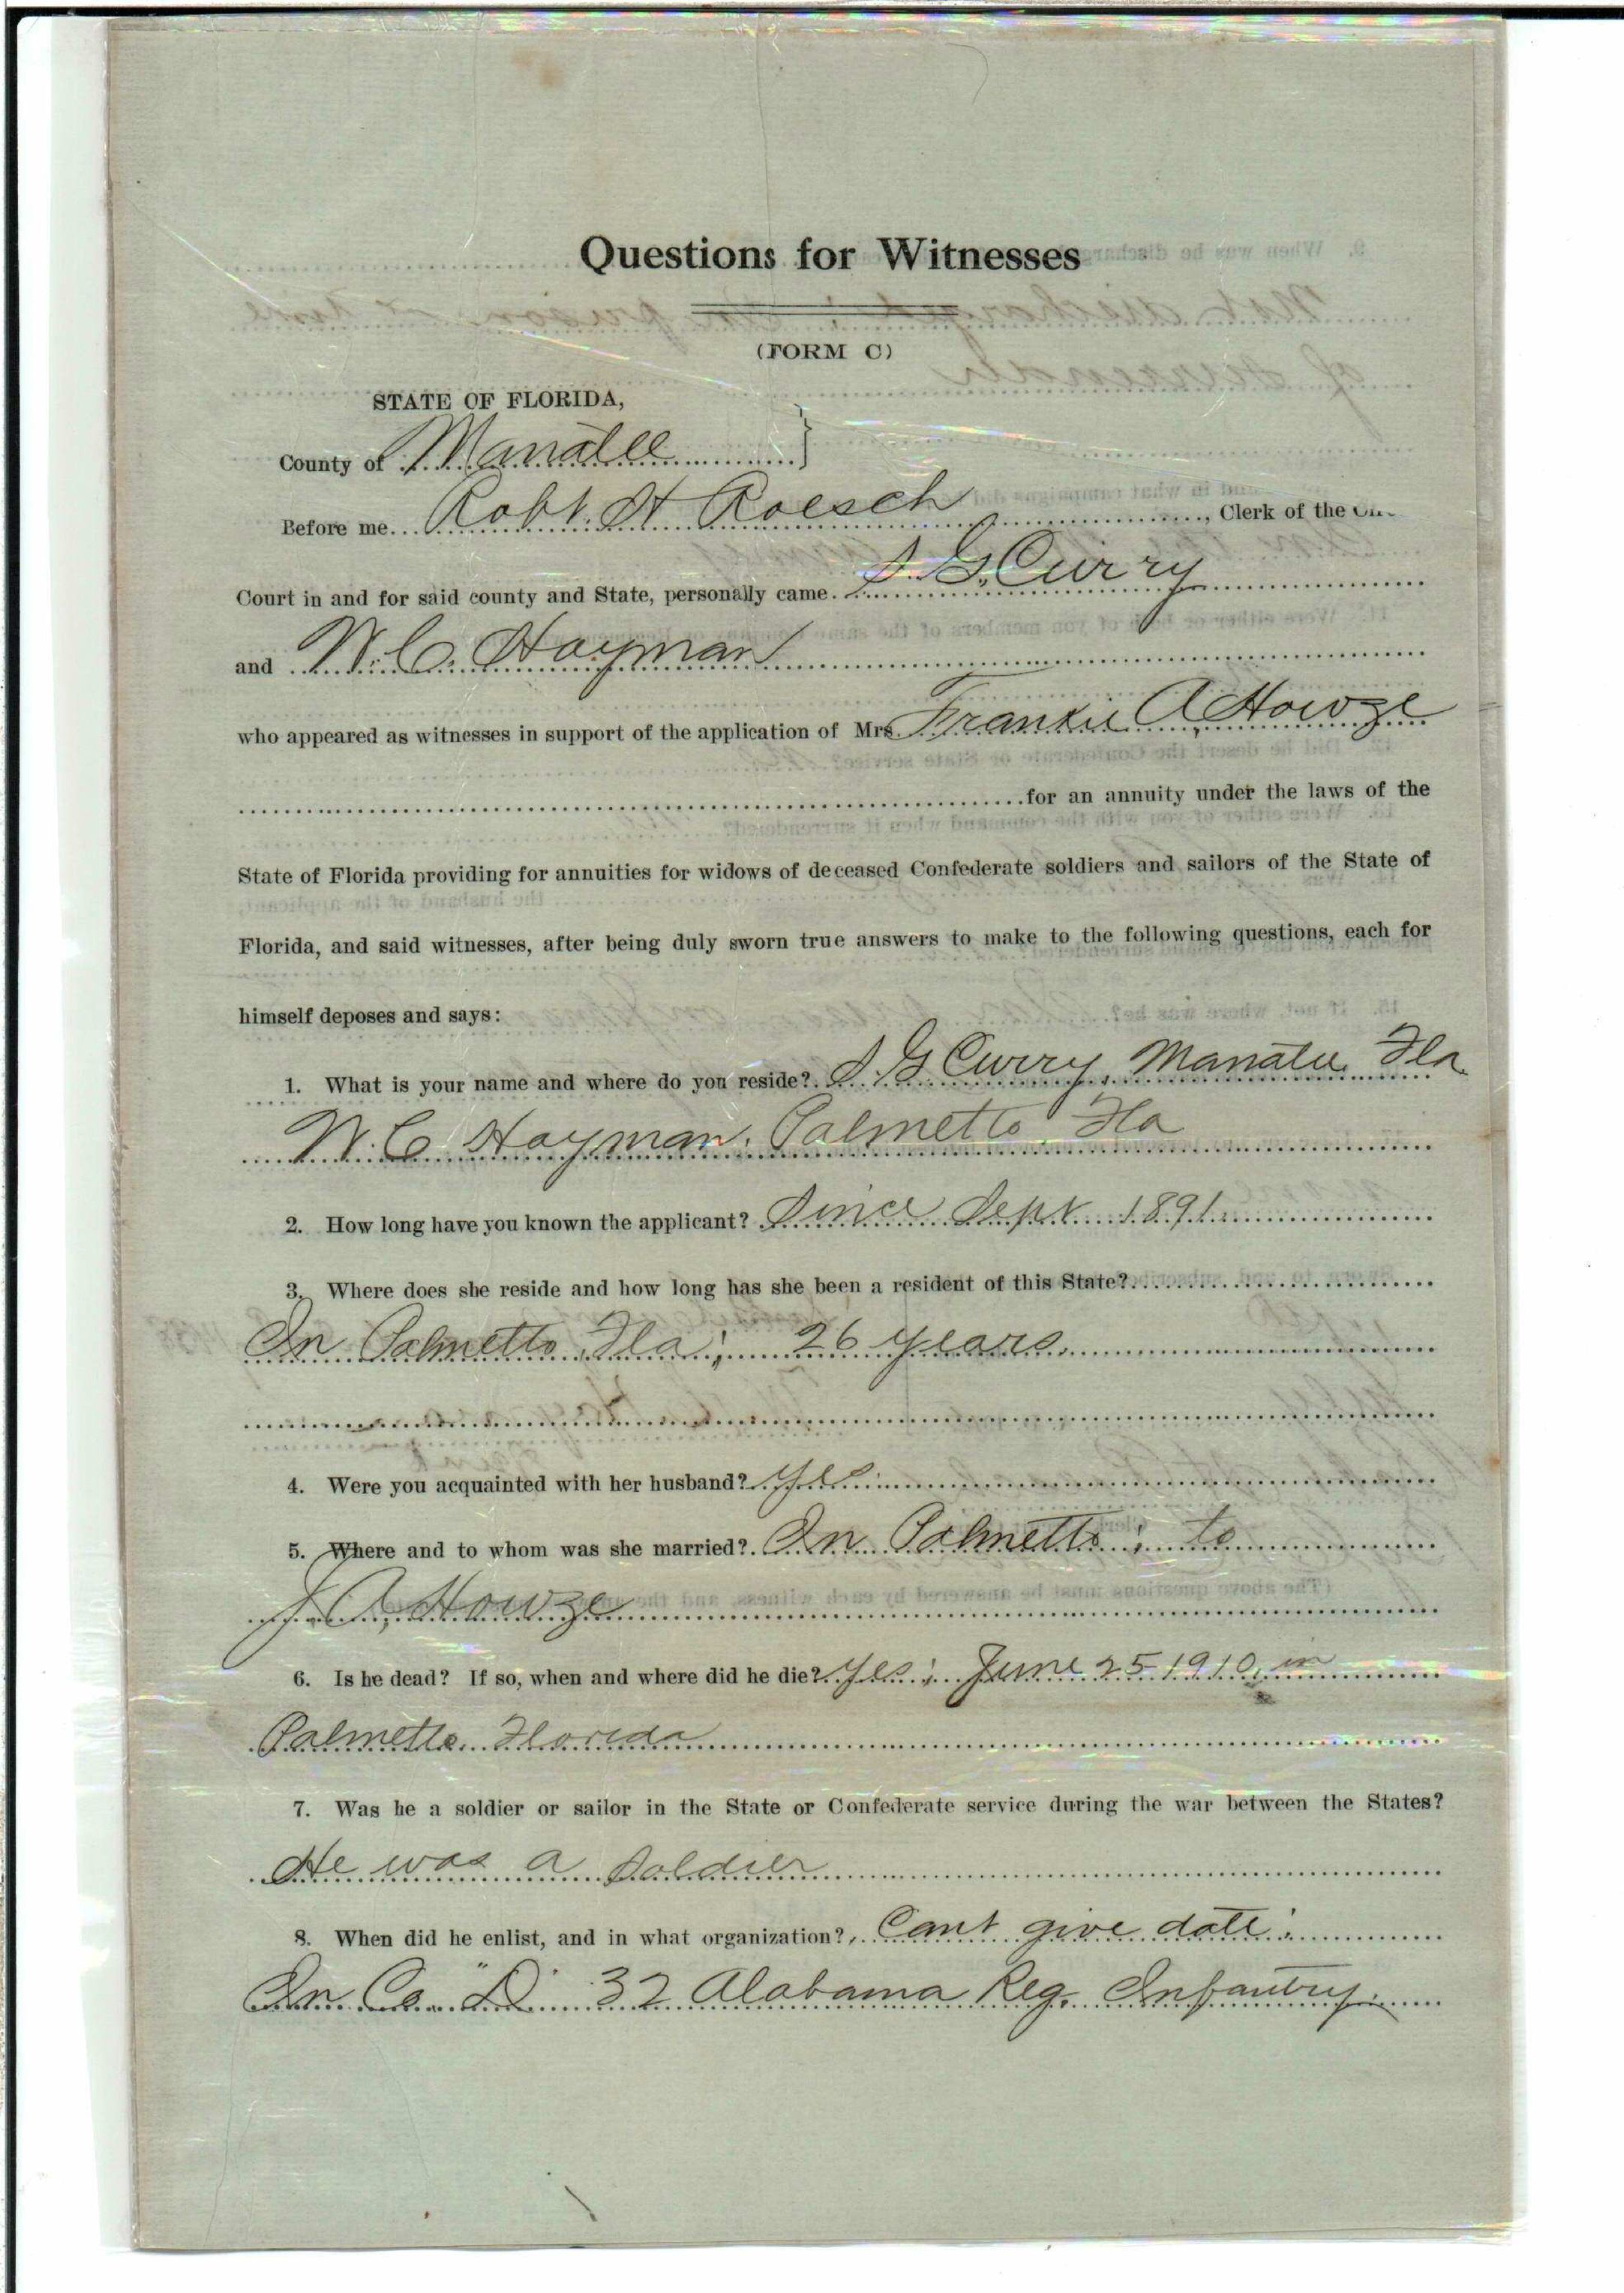 Questions for Witnesses
(FORM C)
STATE OF FLORIDA,
County of Manatee
Before me Robt. H Roesch, Clerk of the Cir-
Court in and for said county and State, personally came. S. G. Curry
and W. C. Hayman
who appeared as witnesses in support of the application of Mrs. Frankie A. Howze
for an annuity under the laws of the
State of Florida providing for annuities for widows of deceased Confederate soldiers and sailors of the State of
Florida, and said witnesses, after being duly sworn true answers to make to the following questions, each for
himself deposes and says:
1. What is your name and where do you reside? S. G Curry, Manatee Fla.
W. C Hayman. Palmetto Fla
2. How long have you known the applicant? Since Sept 1891
3. Where does she reside and how long has she been a resident of this State?
In Palmetto, Fla; 26 years.
4. Were you acquainted with her husband? yes
5. Where and to whom was she married? In Palmetto; to
J. A. Howze
6. Is he dead? If so, when and where did he die? yes; June 25 1910, in
Palmetto, Florida
7. Was he a soldier or sailor in the State or Confederate service during the war between the States?
He was a soldier
8. When did he enlist, and in what organization? Cant give date;
In Co. "D" 32 Alabama Reg. Infantry.